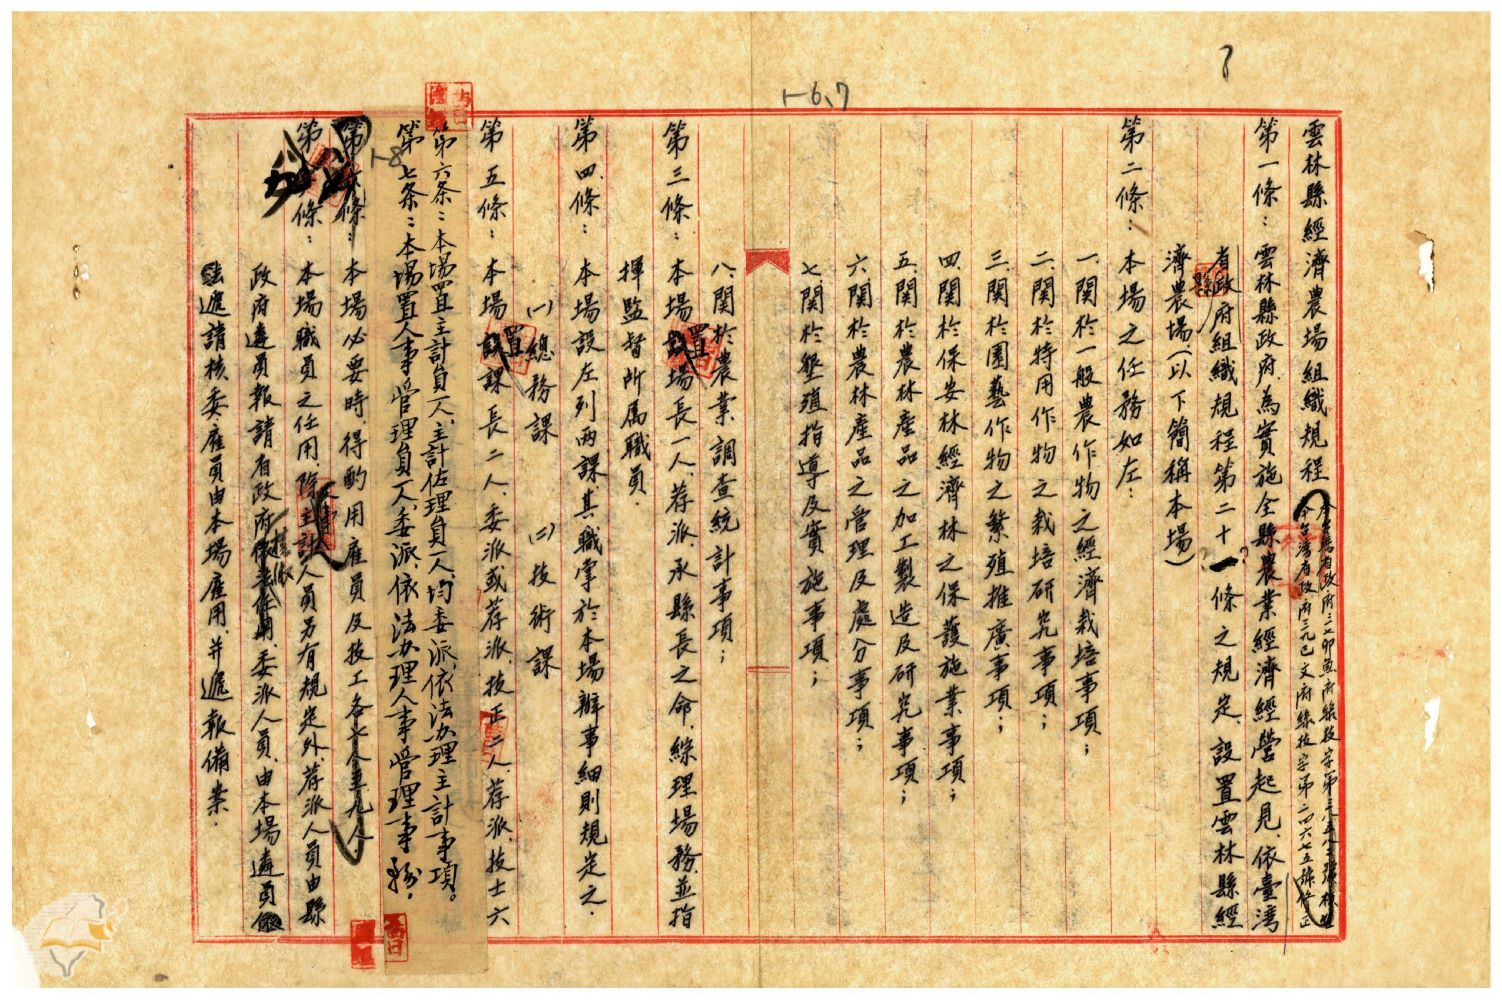 1-6、7
雲林縣經濟農場組織規程
第一條：雲林縣政府為實施全縣農業經濟經營起見、依臺灣
省縣政府組織規程第二十一條之規定、設置雲林縣經
濟農場（以下簡稱本場）
第二條：本場之任務如左：
一、関於一般農作物之經濟栽培事項；
二、関於特用作物之栽培研究事項；
三、関於園藝作物之繁殖推廣事項；
四、関於保安林經濟林之保護施業事項；
五、関於農林產品之加工製造及研究事項；
六、関於農林產品之管理及處分事項；
七、関於墾殖指導及實施事項；
八、関於農業調查統計事項；
第三條：本場置場長一人、荐派、承縣長之命、綜理場務、並指
揮監督所属職員．
第四條：本場設左列両課其職掌於本場辦事細則規定之．
㈠總務課 ㈡技術課
第五條：本場置課長二人、委派或荐派、技正二人、荐派、技士六
第六条：本場置主計員一人、主計佐理員一人、均委派、依法办理主計事項。
第七条：本場置人事管理員一人、委派、依法办理人事管理事務．
1-8
條：本場必要時、得酌用雇員及技工各
第 條：本場職員之任用、除主計人員另有規定外、荐派人員由縣
政府遴員報請省政府 委派人員、由本場遴員
遞請核委雇員由本場雇用、并遞報備案．